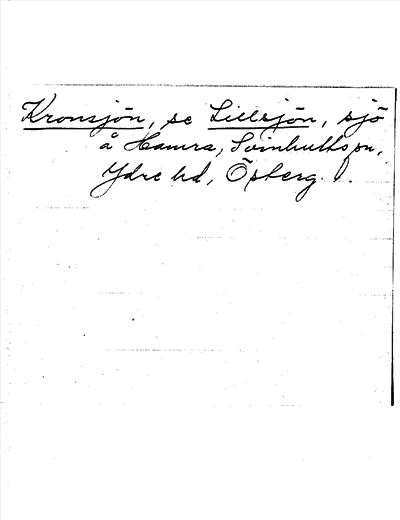 Kronsjön, se Lillsjön, sjö
å Hamra, Svinhults sn,
Ydre hd, Österg.